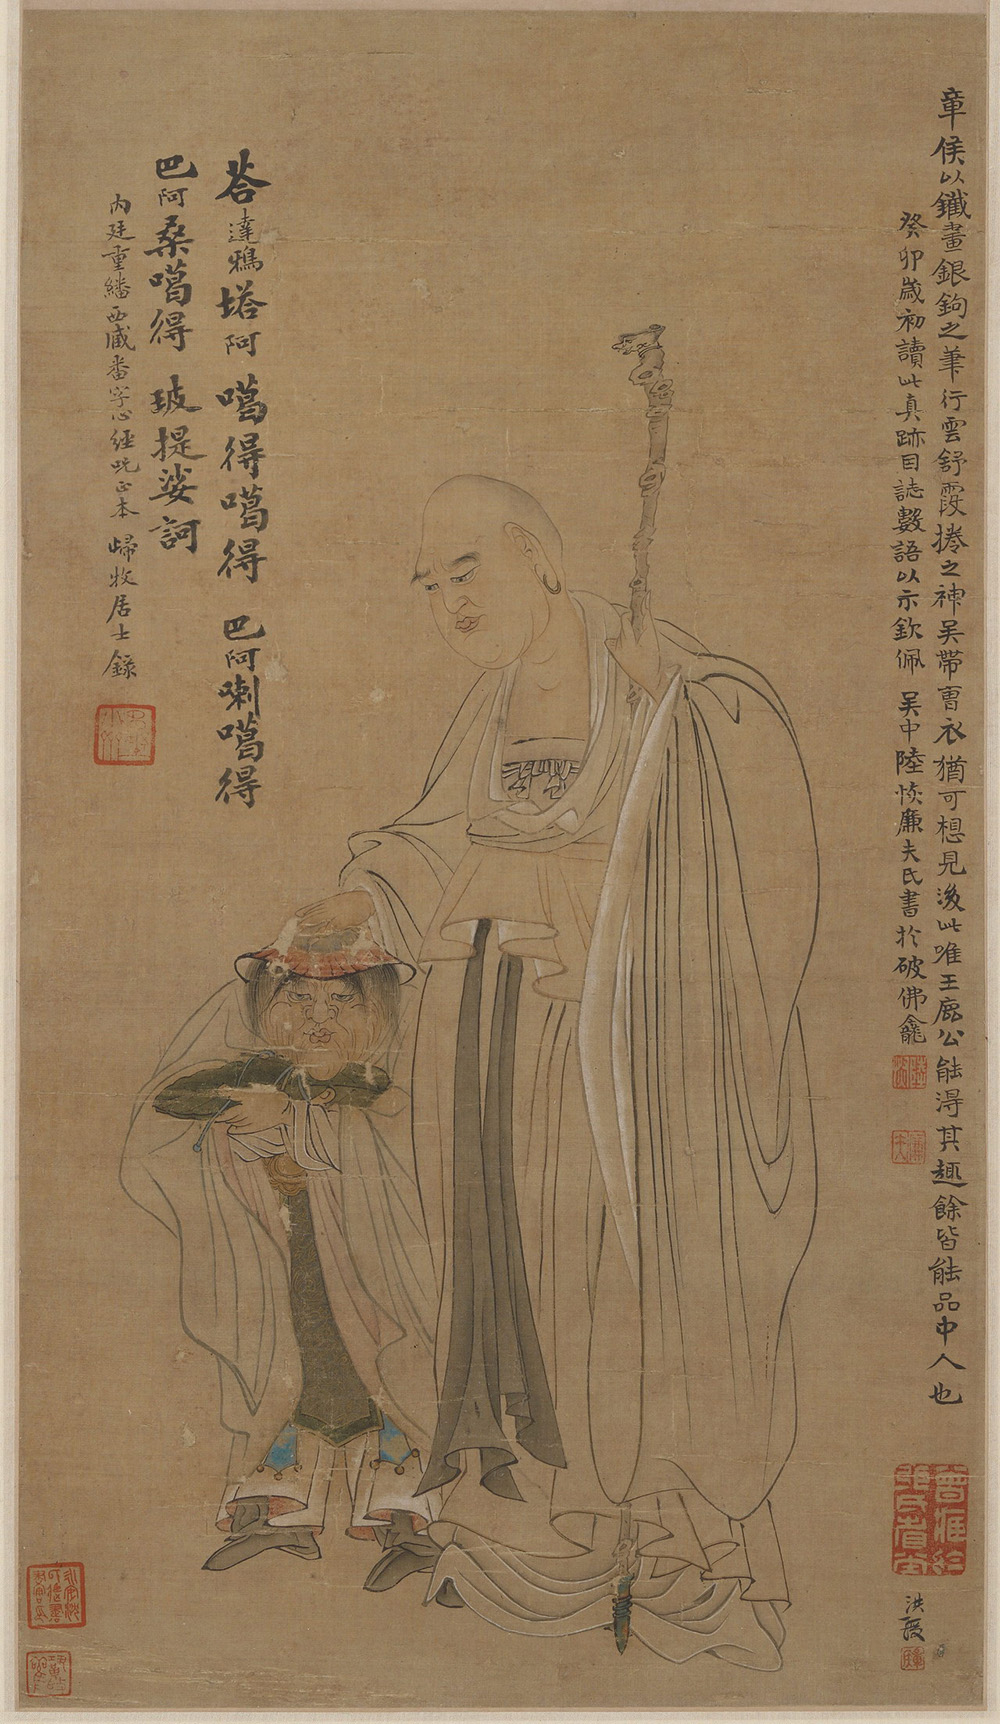 章侯以鐵畫銀鉤之筆行雲舒霞捲之神吴帶曹衣猶可想見後此唯王麓公能得其趣餘皆能品中人也
癸卯歲初讀此真跡因誌數語以示欽佩 吴中陸恢廉夫氏書於破佛龕
荅達鴉塔阿 噶得噶得 巴阿喇噶得
巴阿桑噶得 玻提娑訶
内廷重繙西藏番字心經呪正本 歸牧居士錄
洪綬